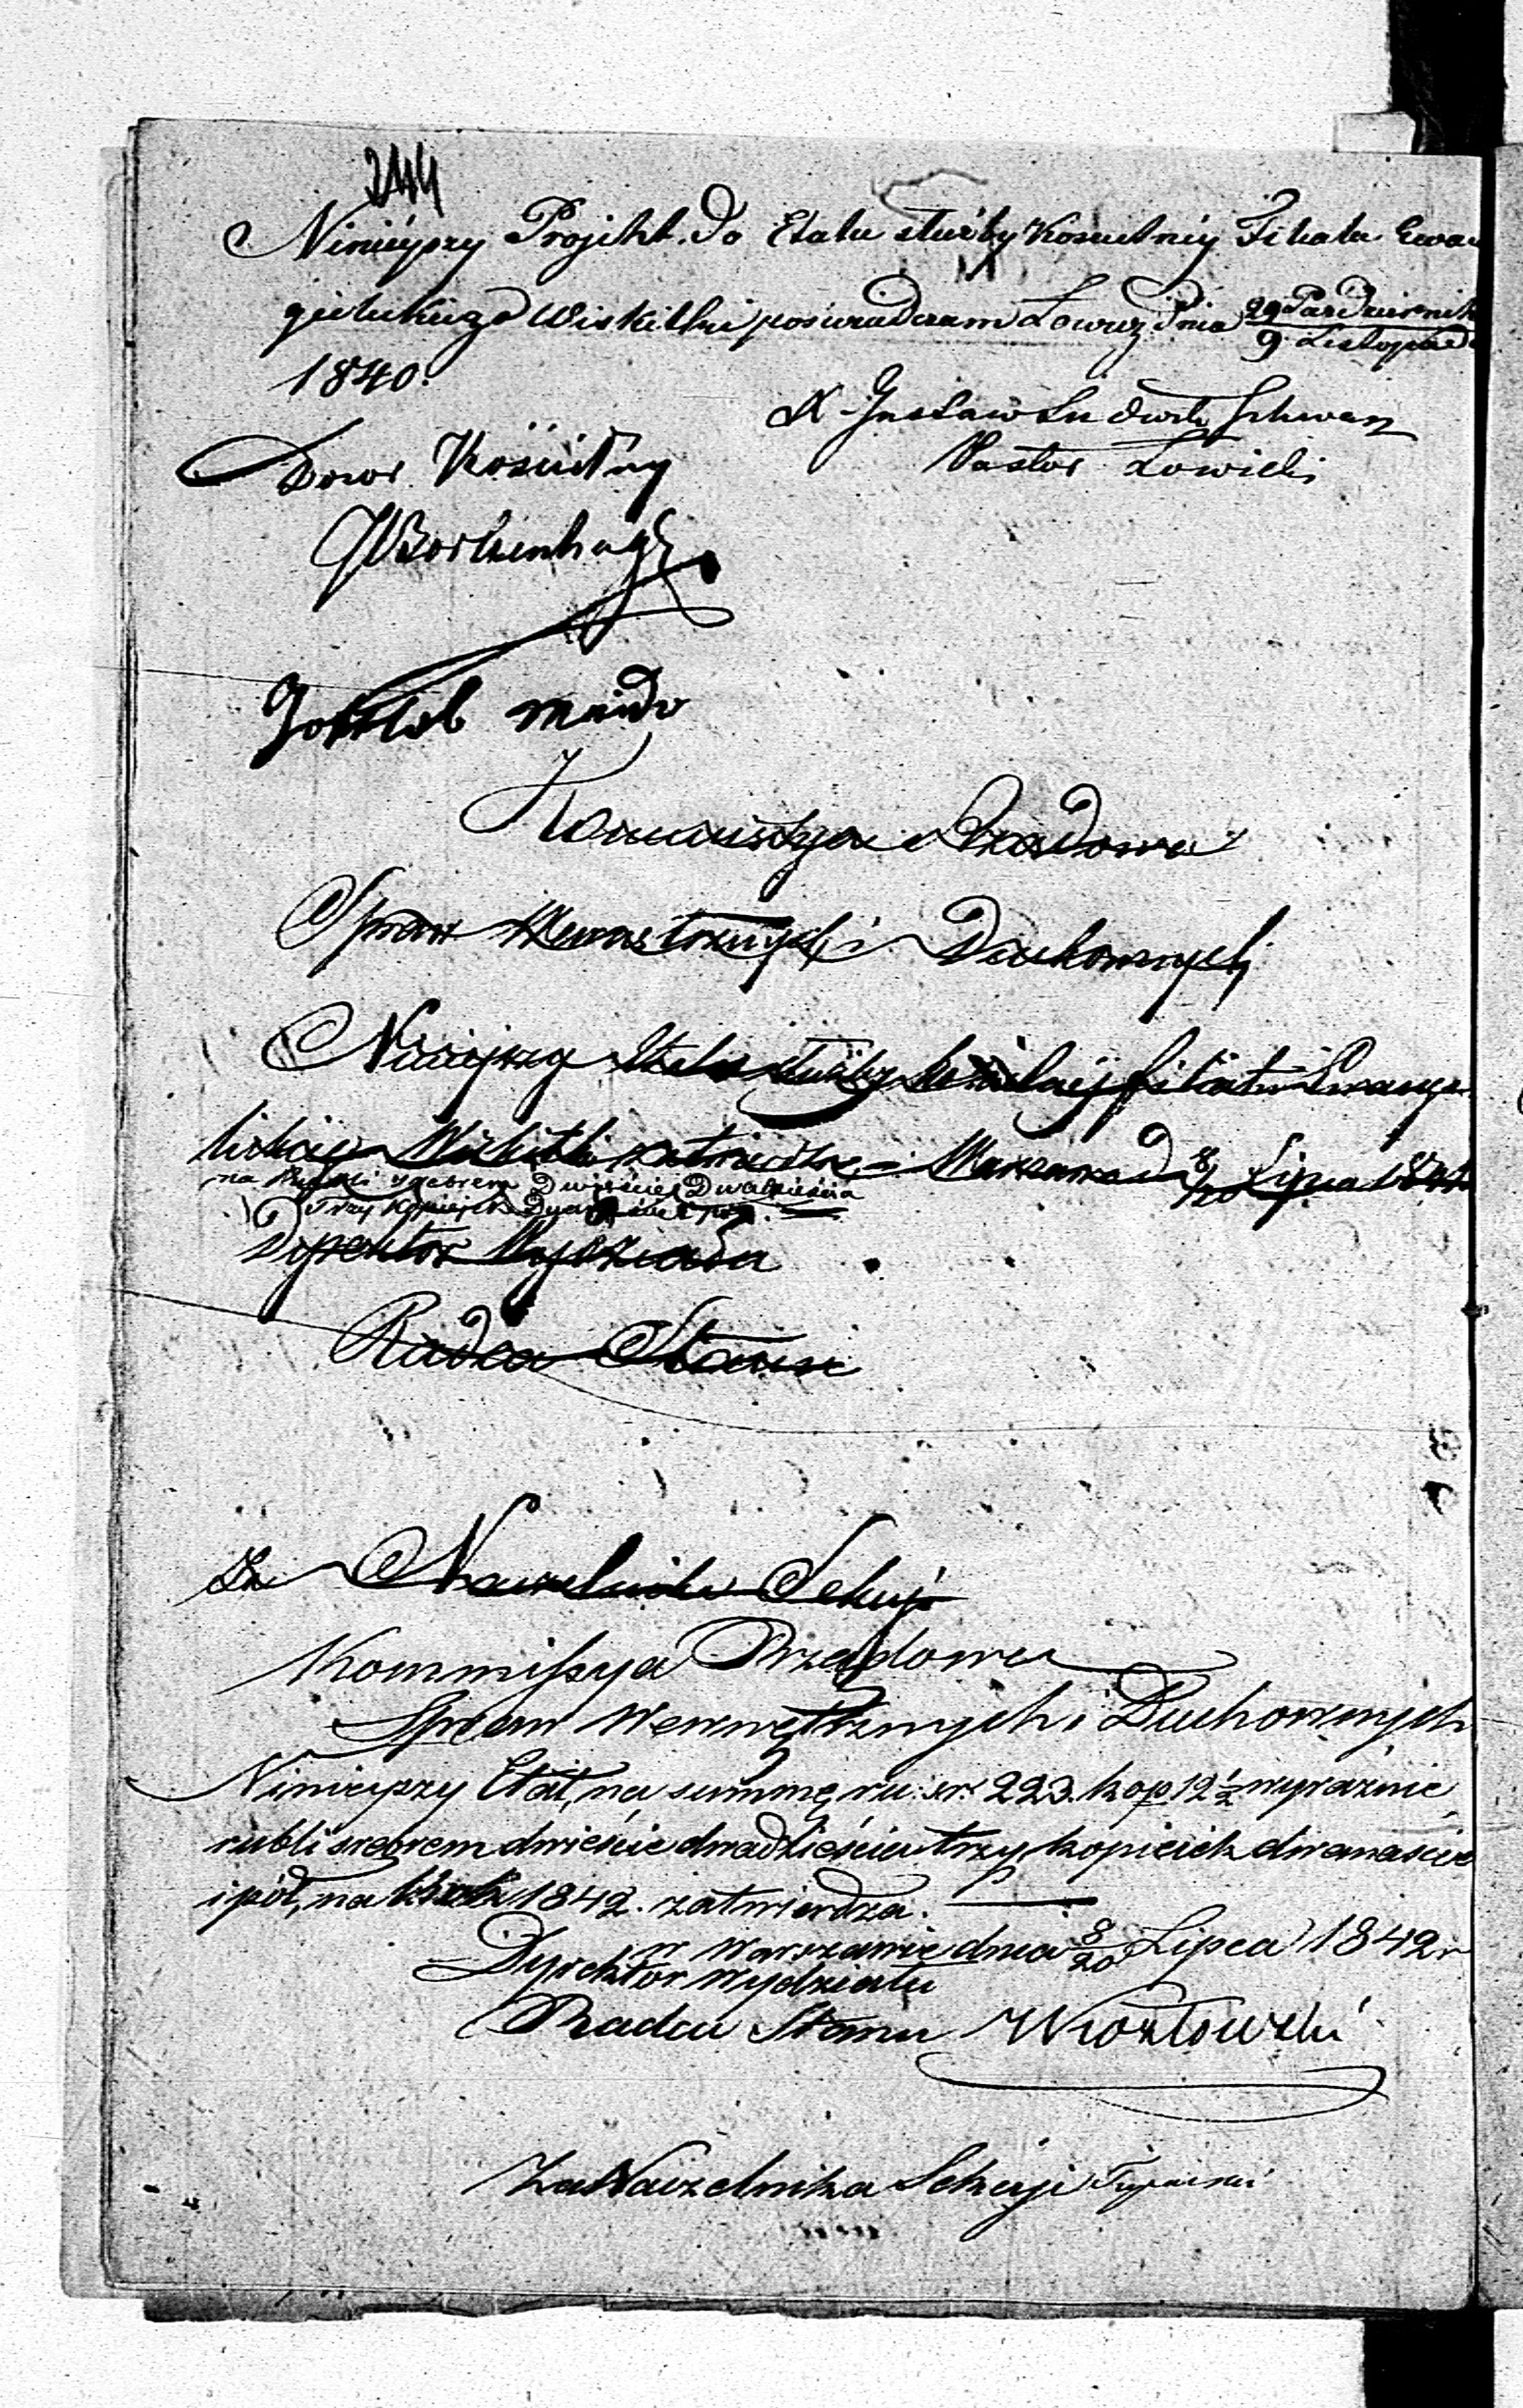 244
Ninieyszy Projekt do Etatu służby Kościelnéy Filiału Ewan
gielickiego Wiskitki poświadczam Łowicz Dnia 29 Październik / 9 Listopada
1840.
X. Gustaw Ludwik Schwarz
Pastor Łowicki
Dozor Kościelny
Gottlob
Kommissya Rządowa
Spraw Wewnętrznych i Duchownych
Niniejszy Etat służby kościelnej filiału Ewange
lickiego Wiskitki zatwierdza Warszawa d 8/20 Lipca 1842
na Rubli srebrem Dwieście Dwadzieścia
Trzy Kopiejek
Dyrektor Wydziału
Radca Stanu
Za Naczelnika Sekcyi
Kommissya Rządowa
Spraw Wewnętrznych i Duchownych
Ninieyszy Etat, na summę ru. sr. 223. kop. 12 ½ wyraźnie
rubli srebrem dwieście dwadzieścia trzy, kopieiek dwanaście
i pół, na rok 1842. zatwierdza.
w Warszawie dnia 8/20 Lipca 1842 r
Dyrektor Wydziału
Radca Stanu Kozłowski
Za Naczelnika Sekcyi